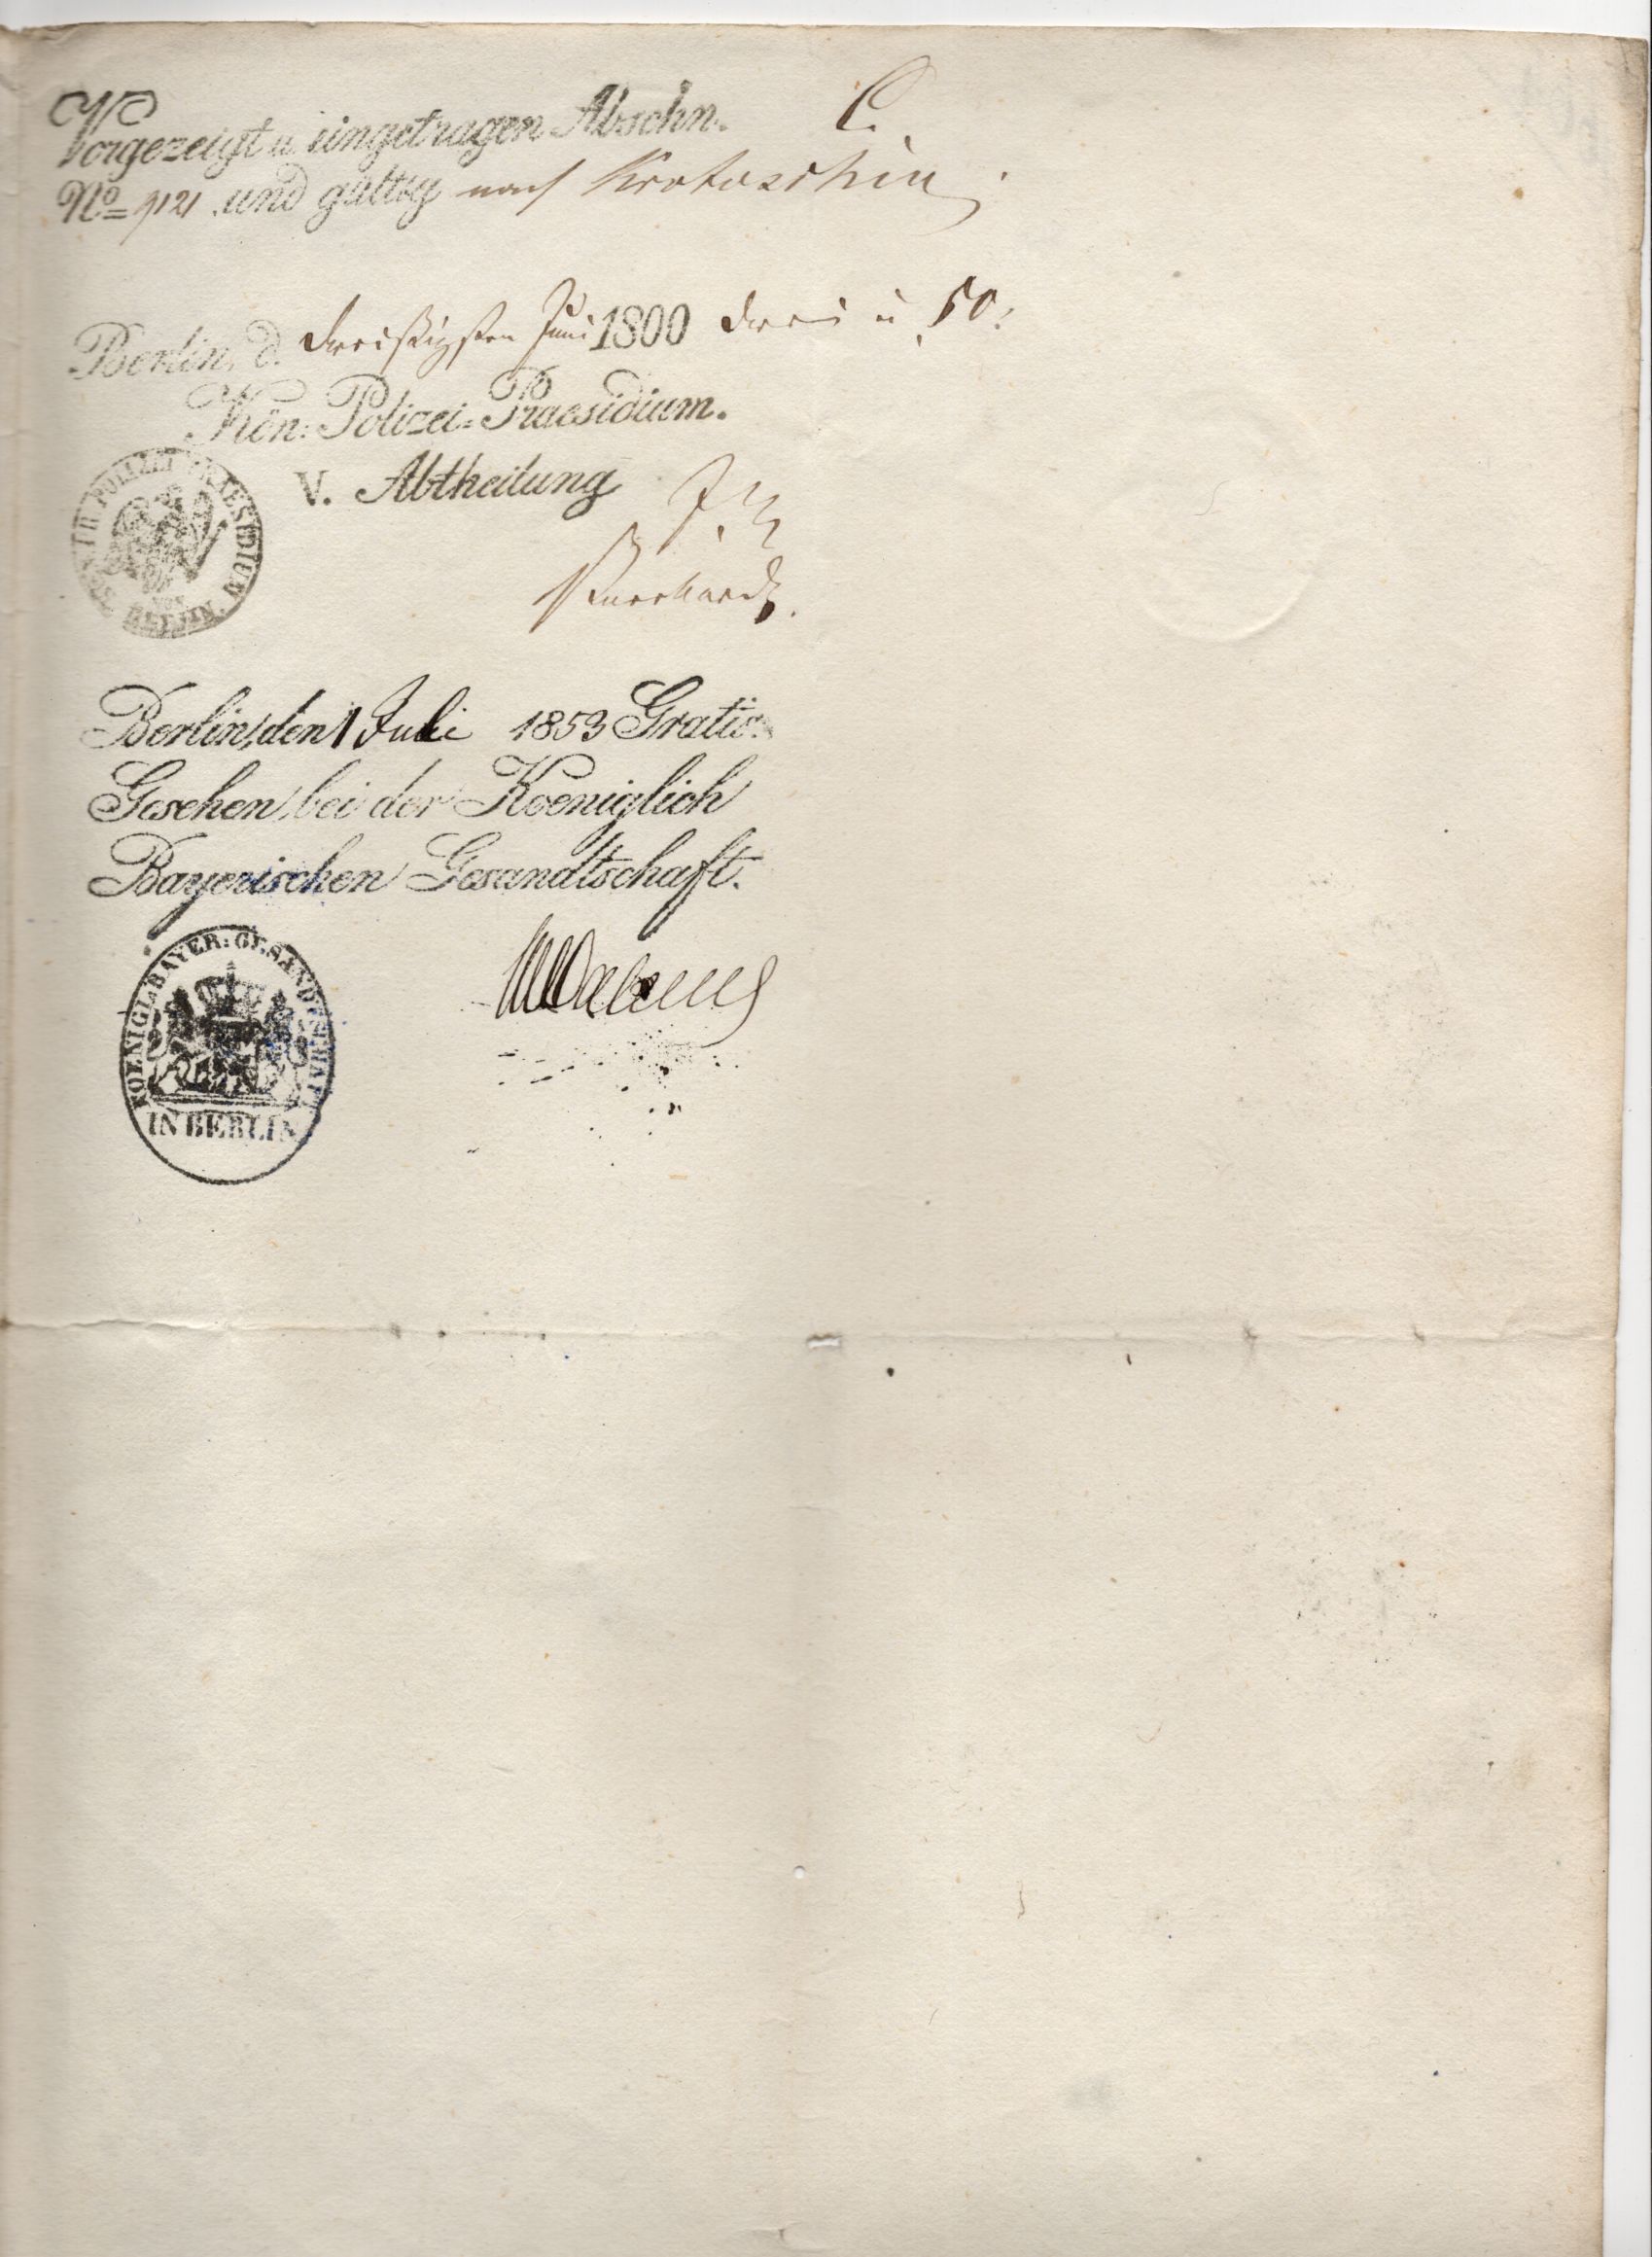 Vorgezeigt u. eingetragen Abschn. C.
No 9121 und gültig nach Krotoschin.
Berlin, d. dreißigsten Juni 1800 drei u. 50.
Kön. Polizei-Praesidium.
V. Abtheilung
POLIZEI PRAESIDIUM
VON
BERLIN
Berlin, den 1 Juli 1853 Gratis.
Gesehen bei der Koeniglich
Bayerischen Gesandtschaft.
KOENIGL. BAYER. GESANDTSCHAFT
IN BERLIN